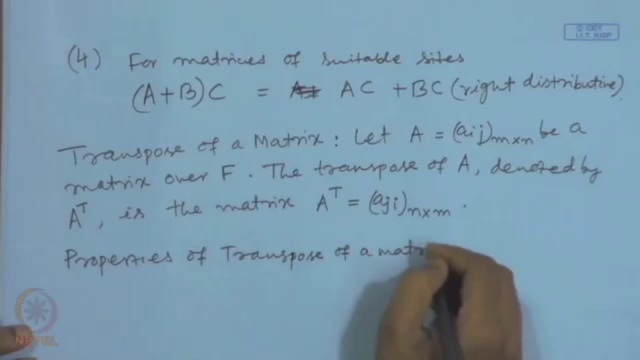 © CET
I.I.T. KGP
(4) For matrices of suitable sites
(A+B)C = AC + BC (right distributive)
Transpose of a Matrix : Let A = (aij)m×n be a
matrix over F. The transpose of A, denoted by
A^T, is the matrix A^T = (aji)n×m .
Properties of Transpose of a matr
NPTEL